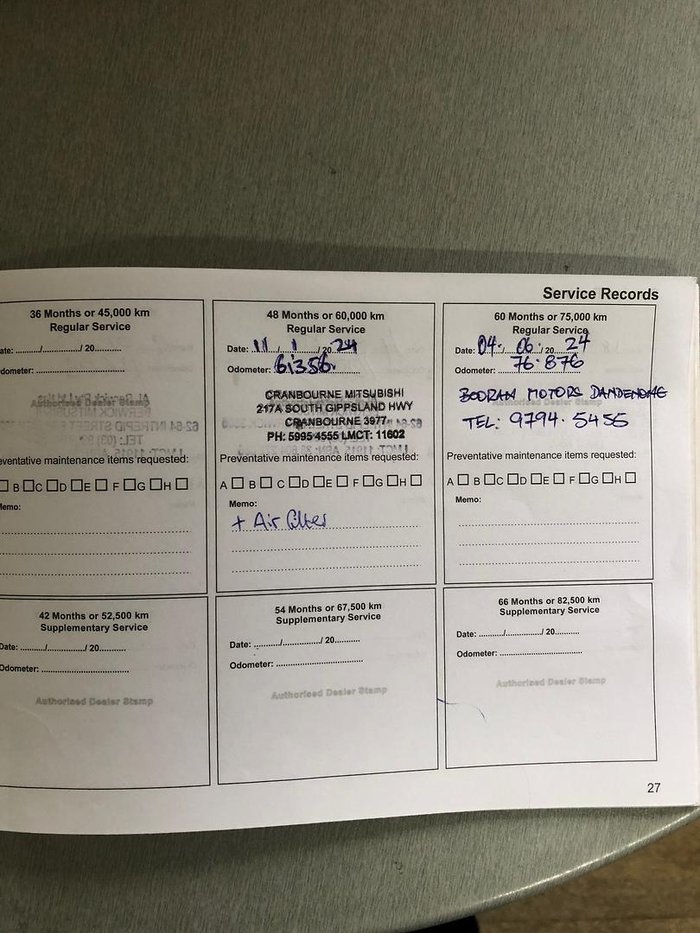 Service Records
36 Months or 45,000 km
Regular Service
ate: ......./............../ 20............
dometer: ................................
Authorised Dealer Stamp
eventative maintenance items requested:
B C D E F G H
emo:
48 Months or 60,000 km
Regular Service
Date: 11 / 1 /20 24
Odometer: 61356.
CRANBOURNE MITSUBISHI
217A SOUTH GIPPSLAND HWY
CRANBOURNE 3977
PH: 5995 4555 LMCT: 11602
Preventative maintenance items requested:
A B C D E F G H
Memo:
+ Air filter
60 Months or 75,000 km
Regular Service
Date: 04. / 06. / 20 24
Odometer: 76.876
BOORAN MOTORS DANDENONG
TEL: 9794.5455
Preventative maintenance items requested:
A B C D E F G H
Memo:
42 Months or 52,500 km
Supplementary Service
Date: ......./............../ 20............
Odometer: ................................
Authorised Dealer Stamp
54 Months or 67,500 km
Supplementary Service
Date: ........./............../ 20...........
Odometer: ................................
Authorised Dealer Stamp
66 Months or 82,500 km
Supplementary Service
Date: ........./............../ 20...........
Odometer: ................................
Authorised Dealer Stamp
27